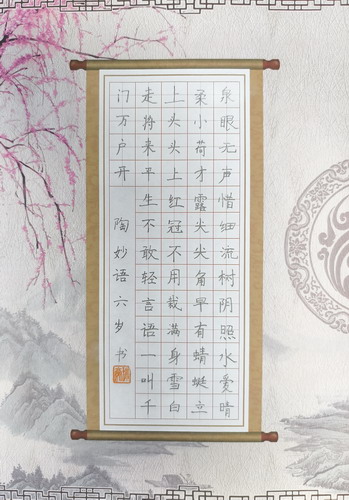 泉眼无声惜细流树阴照水爱晴
柔小荷才露尖尖角早有蜻蜓立
上头头上红冠不用裁满身雪白
走将来平生不敢轻言语一叫千
门万户开 陶妙语六岁书